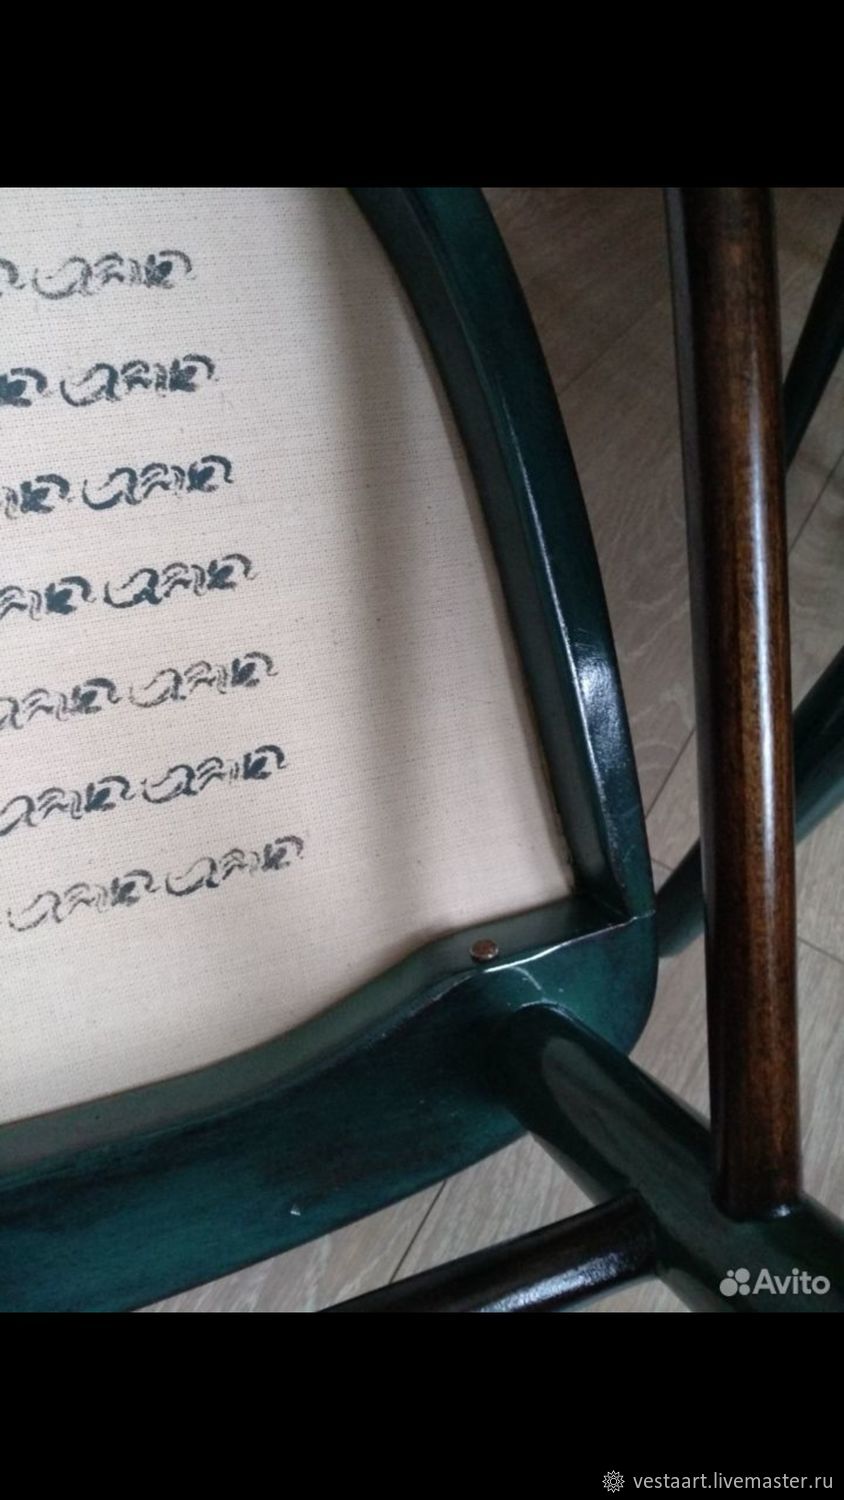 Avito
vestaart.livemaster.ru